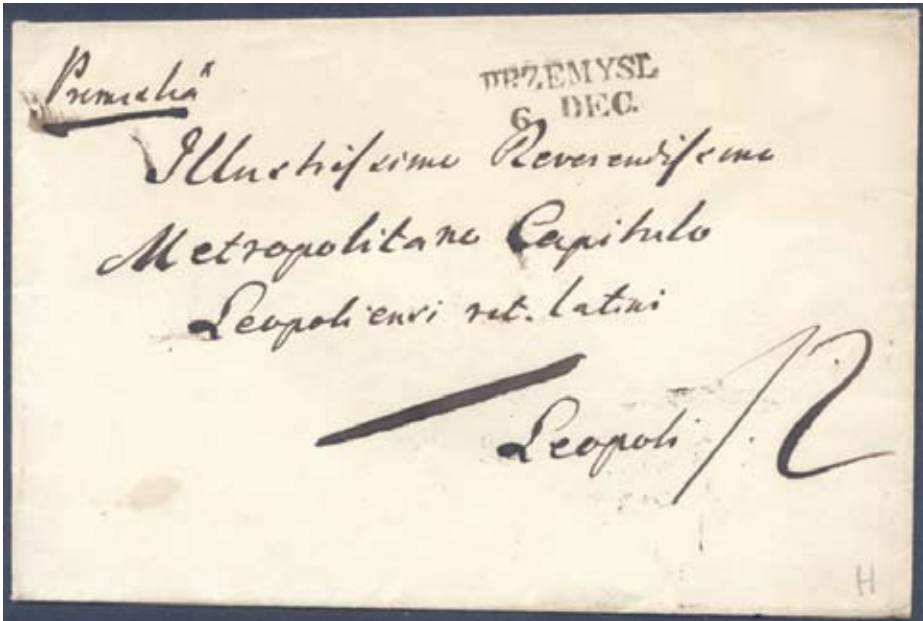 Premislia
PRZEMYSL
6 DEC.
Illustrissimo Reverendissimo
Metropolitano Capitulo
Leopoliensi rit. latini
Leopoli
12
H